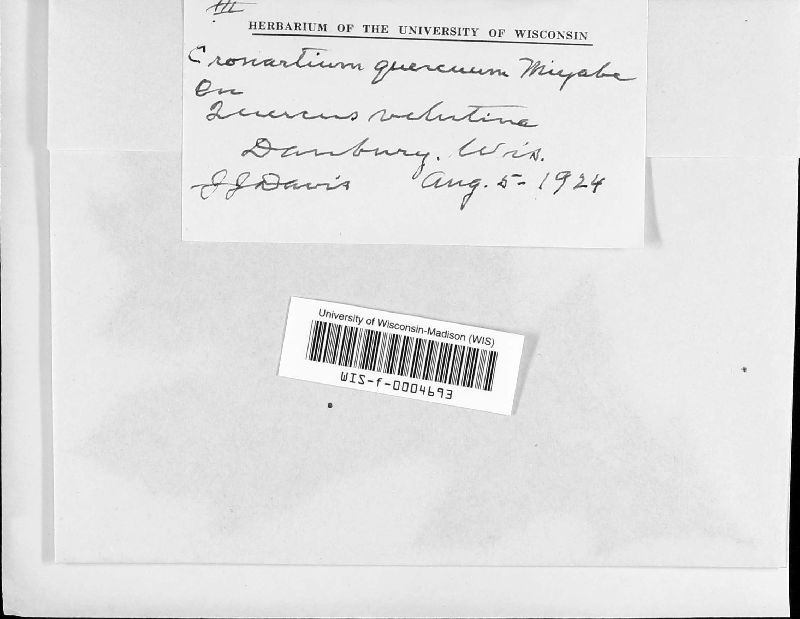 III
HERBARIUM OF THE UNIVERSITY OF WISCONSIN
Cronartium quercuum Miyabe
On
Quercus velutina
Danbury, Wis.
J J Davis Aug. 5- 1924
University of Wisconsin-Madison (WIS)
WIS-f-0004693